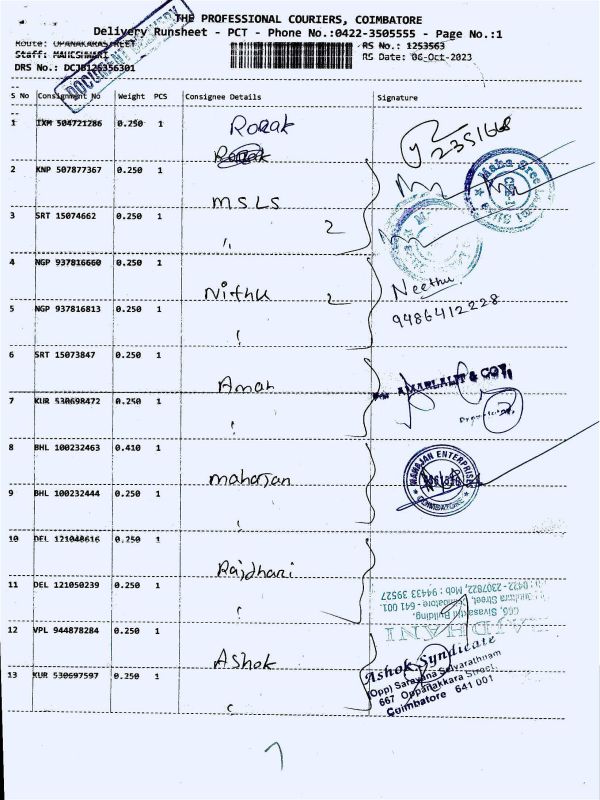 THE PROFESSIONAL COURIERS, COIMBATORE
Delivery Runsheet - PCT - Phone No.:0422-3505555 - Page No.:1
DOCUMENT DELIVERY
Route: OPANAKARASTREET
Staff: MAHESHWARI
DRS No.: DCJB126356301
RS No.: 1253563
RS Date: 06-Oct-2023
S No Consignment No Weight PCS Consignee Details Signature
1 IXM 504721286 0.250 1 Rozak
2351668
2 KNP 507877367 0.250 1
M.S.L.S
3 SRT 15074662 0.250 1 " 2
4 NGP 937816660 0.250 1
Nithu 2 Neethu
9486412228
5 NGP 937816813 0.250 1
6 SRT 15073847 0.250 1
Aman
AMARLALIT & COY.
7 KUR 530698472 0.250 1
8 BHL 100232463 0.410 1
maharjan
MAHAJAN ENTERPRISES
COIMBATORE
9 BHL 100232444 0.250 1
10 DEL 121048616 0.250 1
Rajdhani
11 DEL 121050239 0.250 1
RAJDHANI
Sivasakthi Building
Street, Coimbatore - 641 001.
0422 - 2307822, Mob : 94433 39527
12 VPL 944878284 0.250 1
Ashok
Ashok Syndicate
(Opp) Saravana Selvarathnam
667 Oppanakkara Street,
Coimbatore 641 001
13 KUR 530697597 0.250 1